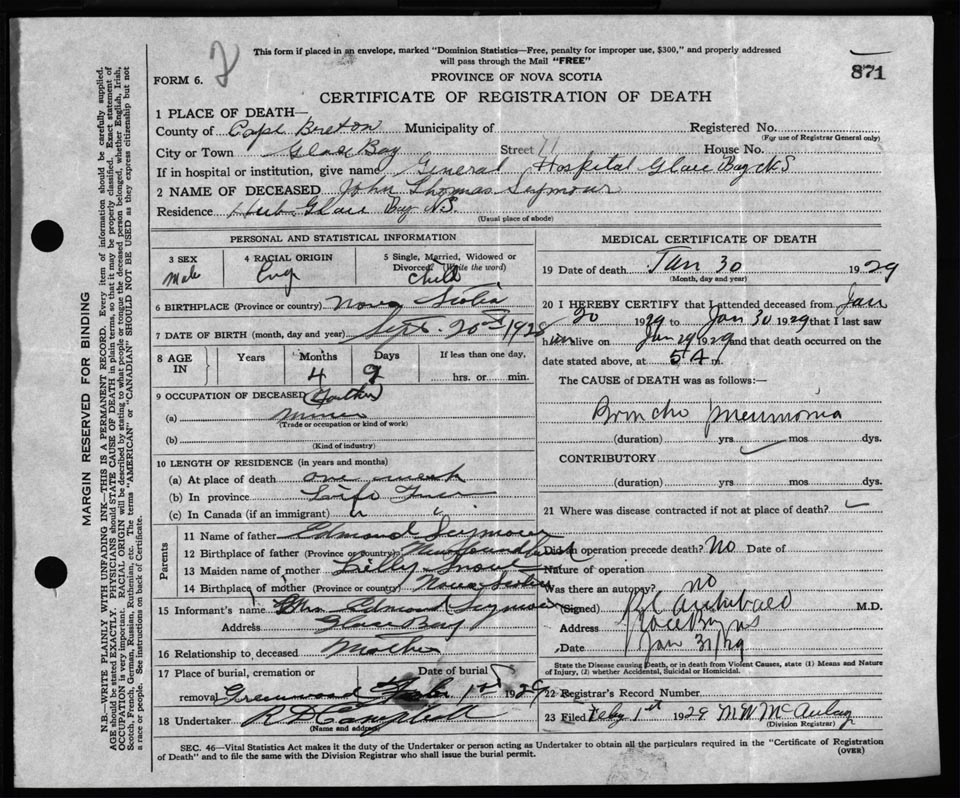 2
This form if placed in an envelope, marked "Dominion Statistics—Free, penalty for improper use, $300," and properly addressed
will pass through the Mail "FREE"
FORM 6.
PROVINCE OF NOVA SCOTIA
871
CERTIFICATE OF REGISTRATION OF DEATH
1 PLACE OF DEATH—
County of Cape Breton Municipality of Registered No.
(For use of Registrar General only)
City or Town Glace Bay Street 11 House No.
If in hospital or institution, give name General Hospital Glace Bay N.S
2 NAME OF DECEASED John Thomas Seymour
Residence Hub Glace Bay N.S.
(Usual place of abode)
PERSONAL AND STATISTICAL INFORMATION
3 SEX Male
4 RACIAL ORIGIN Eng
5 Single, Married, Widowed or
Divorced. (Write the word) Child
6 BIRTHPLACE (Province or country) Nova Scotia
7 DATE OF BIRTH (month, day and year) Sept. 20th 1928
8 AGE IN Years Months 4 Days 9 If less than one day,
hrs. or min.
9 OCCUPATION OF DECEASED (Father)
(a) Miner
(Trade or occupation or kind of work)
(b)
(Kind of industry)
10 LENGTH OF RESIDENCE (in years and months)
(a) At place of death one week
(b) In province Life Time
(c) In Canada (if an immigrant) " "
Parents
11 Name of father Edmond Seymour
12 Birthplace of father (Province or country) Newfoundland
13 Maiden name of mother Lilly
14 Birthplace of mother (Province or country) Nova Scotia
15 Informant's name Mrs Edmond Seymour
Address Glace Bay
16 Relationship to deceased Mother
17 Place of burial, cremation or Date of burial
removal Greenwood Feb. 1st 1929
18 Undertaker R D Campbell
(Name and address)
MEDICAL CERTIFICATE OF DEATH
19 Date of death Jan 30 1929
(Month, day and year)
20 I HEREBY CERTIFY that I attended deceased from Jan
20 1929 to Jan 30 1929 that I last saw
him alive on Jan 29 1929 and that death occurred on the
date stated above, at 5 A m.
The CAUSE of DEATH was as follows:—
Broncho pneumonia
(duration) yrs. mos. dys.
CONTRIBUTORY
(duration) yrs. mos. dys.
21 Where was disease contracted if not at place of death?
Did an operation precede death? No Date of
Nature of operation
Was there an autopsy? no
(Signed) Archibald M.D.
Address Glace Bay NS
Date Jan 31/29
State the Disease causing Death, or in death from Violent Causes, state (1) Means and Nature
of Injury, (2) whether Accidental, Suicidal or Homicidal.
22 Registrar's Record Number
23 Filed Feby 1st 1929 M W McAulay
(Division Registrar)
SEC. 46—Vital Statistics Act makes it the duty of the Undertaker or person acting as Undertaker to obtain all the particulars required in the "Certificate of Registration
of Death" and to file the same with the Division Registrar who shall issue the burial permit.
(OVER)
MARGIN RESERVED FOR BINDING
N.B.—WRITE PLAINLY WITH UNFADING INK—THIS IS A PERMANENT RECORD. Every item of information should be carefully supplied.
AGE should be stated EXACTLY. PHYSICIANS should STATE CAUSE OF DEATH in plain terms, so that it may be properly classified. Exact statement of
OCCUPATION is very important. RACIAL ORIGIN will be described by stating to what people or tongue the deceased person belonged, whether English, Irish,
Scotch, French, German, Russian, Ruthenian, etc. The terms "AMERICAN" or "CANADIAN" SHOULD NOT BE USED as they express citizenship but not
a race or people. See instructions on back of Certificate.